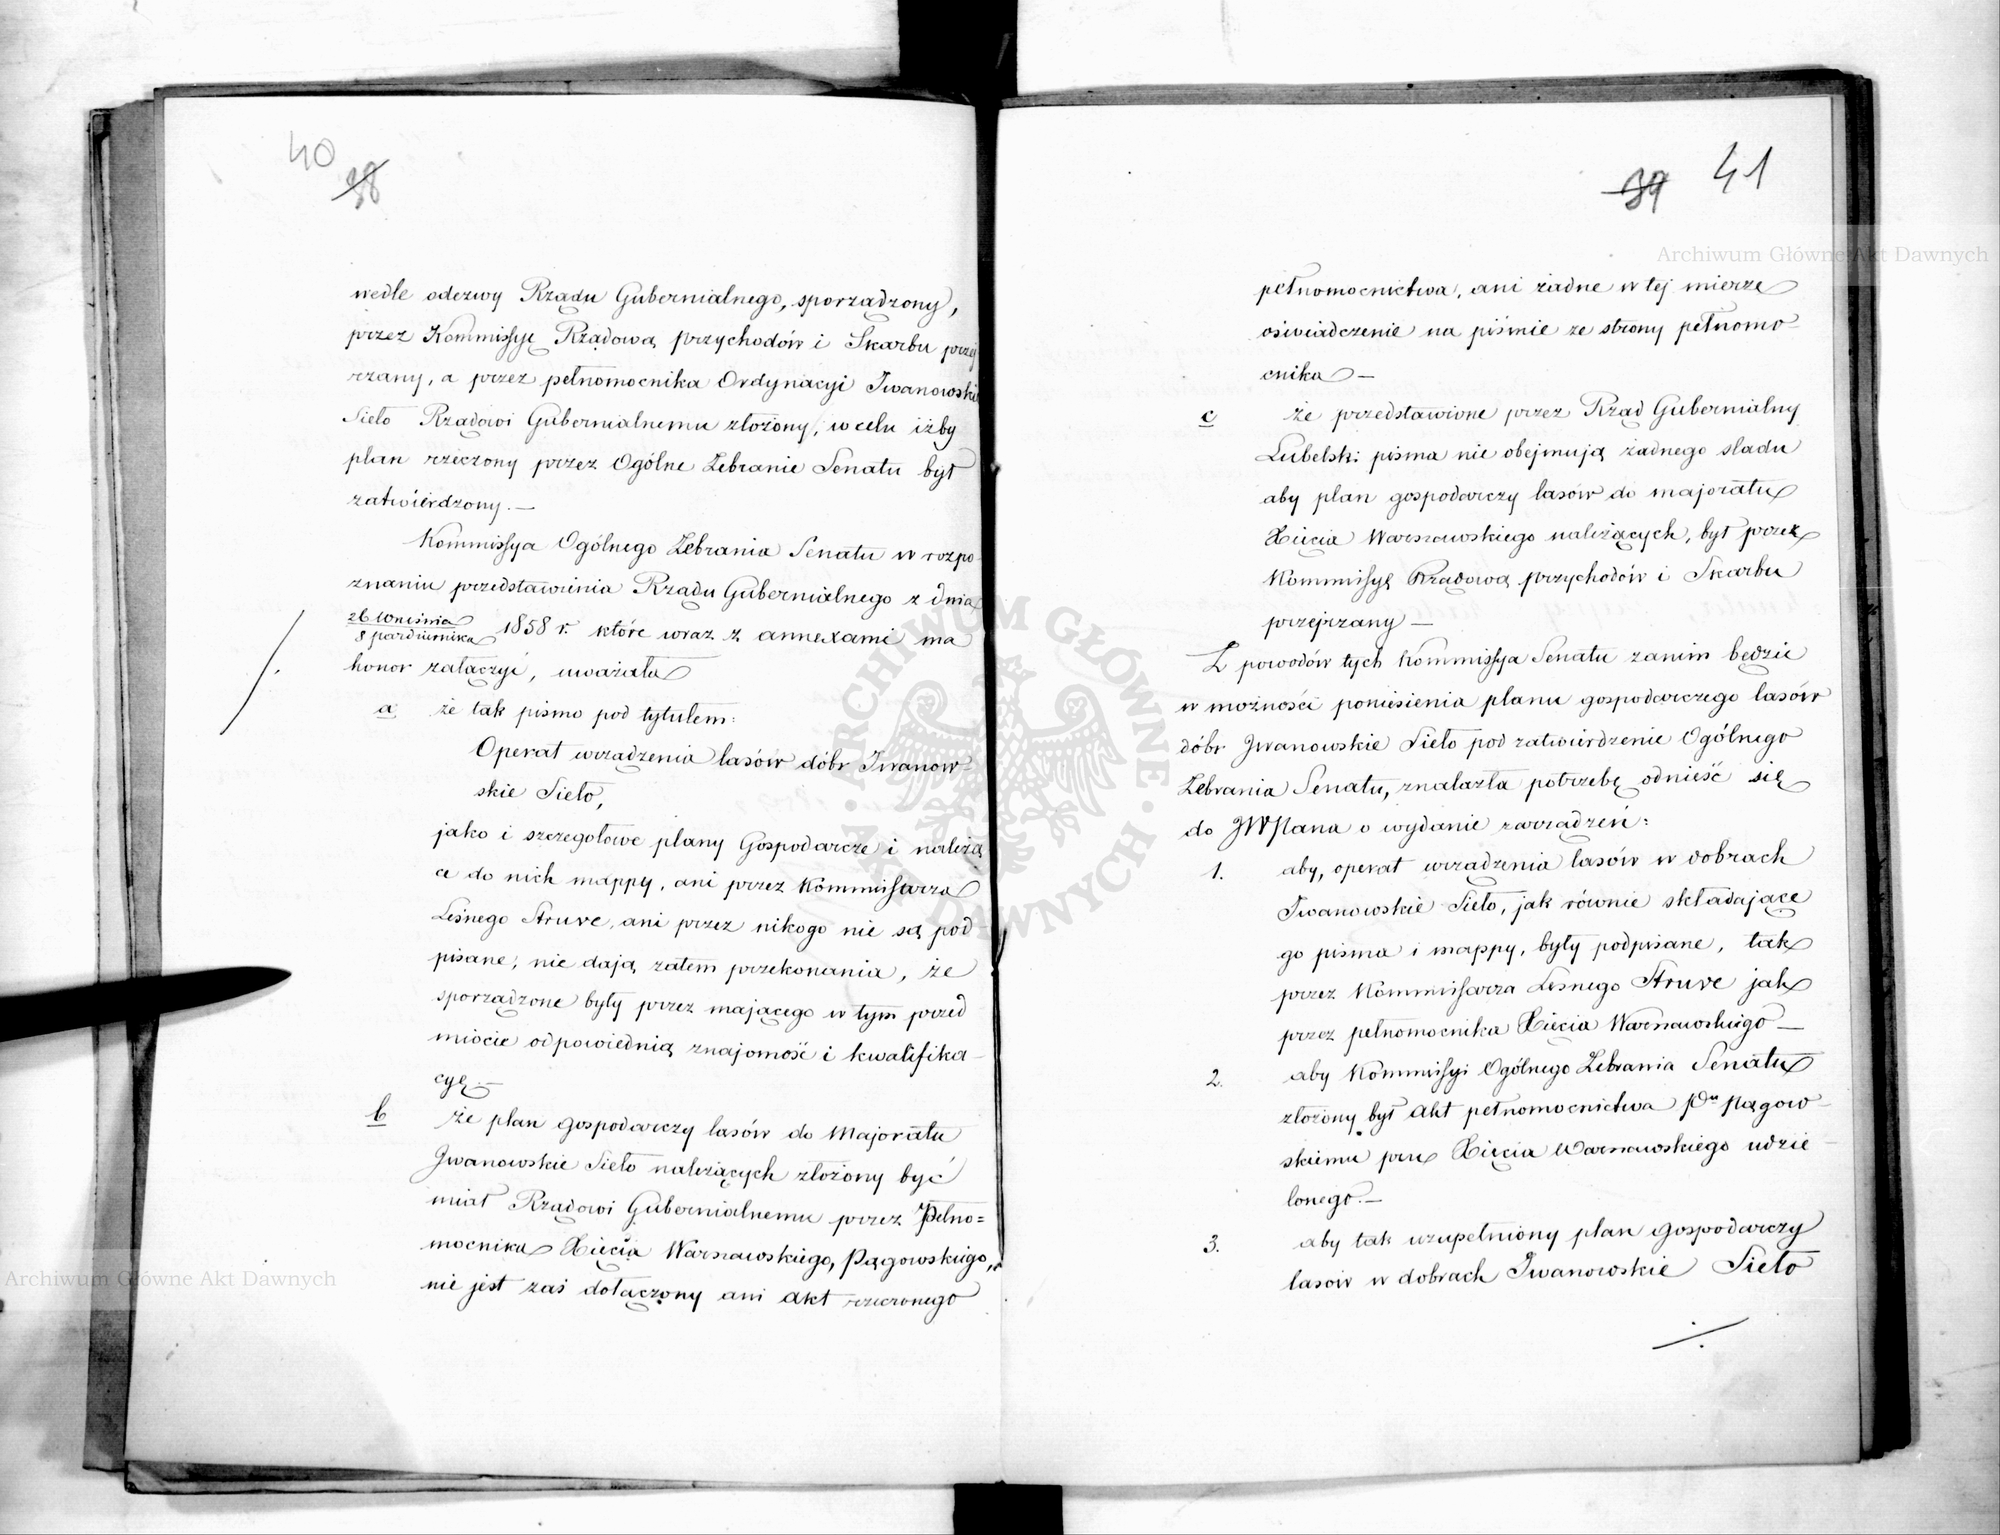 40
38
wedle odezwy Rządu Gubernialnego, sporządzony,
przez Kommissyę Rządową przychodów i Skarbu przej
rzany, a przez pełnomocnika Ordynacyi Iwanowskie
Sieło Rządowi Gubernialnemu złożony, w celu iżby
plan rzeczony przez Ogólne Zebranie Senatu był
zatwierdzony. —
Kommissya Ogólnego Zebrania Senatu w rozpo
znaniu przedstawienia Rządu Gubernialnego z dnia
26 Września
8 października 1858 r. które wraz z annexami ma
honor załączyć, uważała
a że tak pismo pod tytułem:
Operat urządzenia lasów dóbr Iwanow-
skie Sieło,
jako i szczegołowe plany Gospodarcze i należą
ce do nich mappy, ani przez Kommissarza
Leśnego Struve, ani przez nikogo nie są pod
pisane, nie dają zatem przekonania, że
sporządzone były przez mającego w tym przed
miocie odpowiednią znajomość i kwalifika-
cyę. —
b że plan gospodarczy lasów do Majoratu
Iwanowskie Sieło należących złożony być
miał Rządowi Gubernialnemu przez Pełno=
mocnika Xięcia Warszawskiego, Pągowskiego,
nie jest zaś dołączony ani akt rzeczonego
39 41
pełnomocnictwa, ani żadne w tej mierze
oświadczenie na piśmie ze strony pełnomo-
cnika —
c że przedstawione przez Rząd Gubernialny
Lubelski pisma nie obejmują żadnego sladu
aby plan gospodarczy lasów do majoratu
Xięcia Warszawskiego należących, był przez
Kommissyę Rządową przychodów i Skarbu
przejrzany —
Z powodów tych Kommissya Senatu zanim będzie
w możności poniesienia planu gospodarczego lasów
dóbr Iwanowskie Sieło pod zatwierdzenie Ogólnego
Zebrania Senatu, znalazła potrzebę odnieść się
do JWPana o wydanie zarządzeń:
1. aby, operat urządzenia lasów w dobrach
Iwanowskie Sieło, jak równie składające
go pisma i mappy, były podpisane, tak
przez Kommissarza Lesnego Struve jak
przez pełnomocnika Xięcia Warszawskiego —
2. aby Kommissyi Ogólnego Zebrania Senatu
złożony był akt pełnomocnictwa Pu Pągow-
skiemu przez Xięcia Warszawskiego udzie-
lonego. —
3. aby tak uzupełniony plan gospodarczy
lasów w dobrach Iwanowskie Sieło
Archiwum Główne Akt Dawnych
Archiwum Główne Akt Dawnych
ARCHIWUM GŁÓWNE AKT DAWNYCH